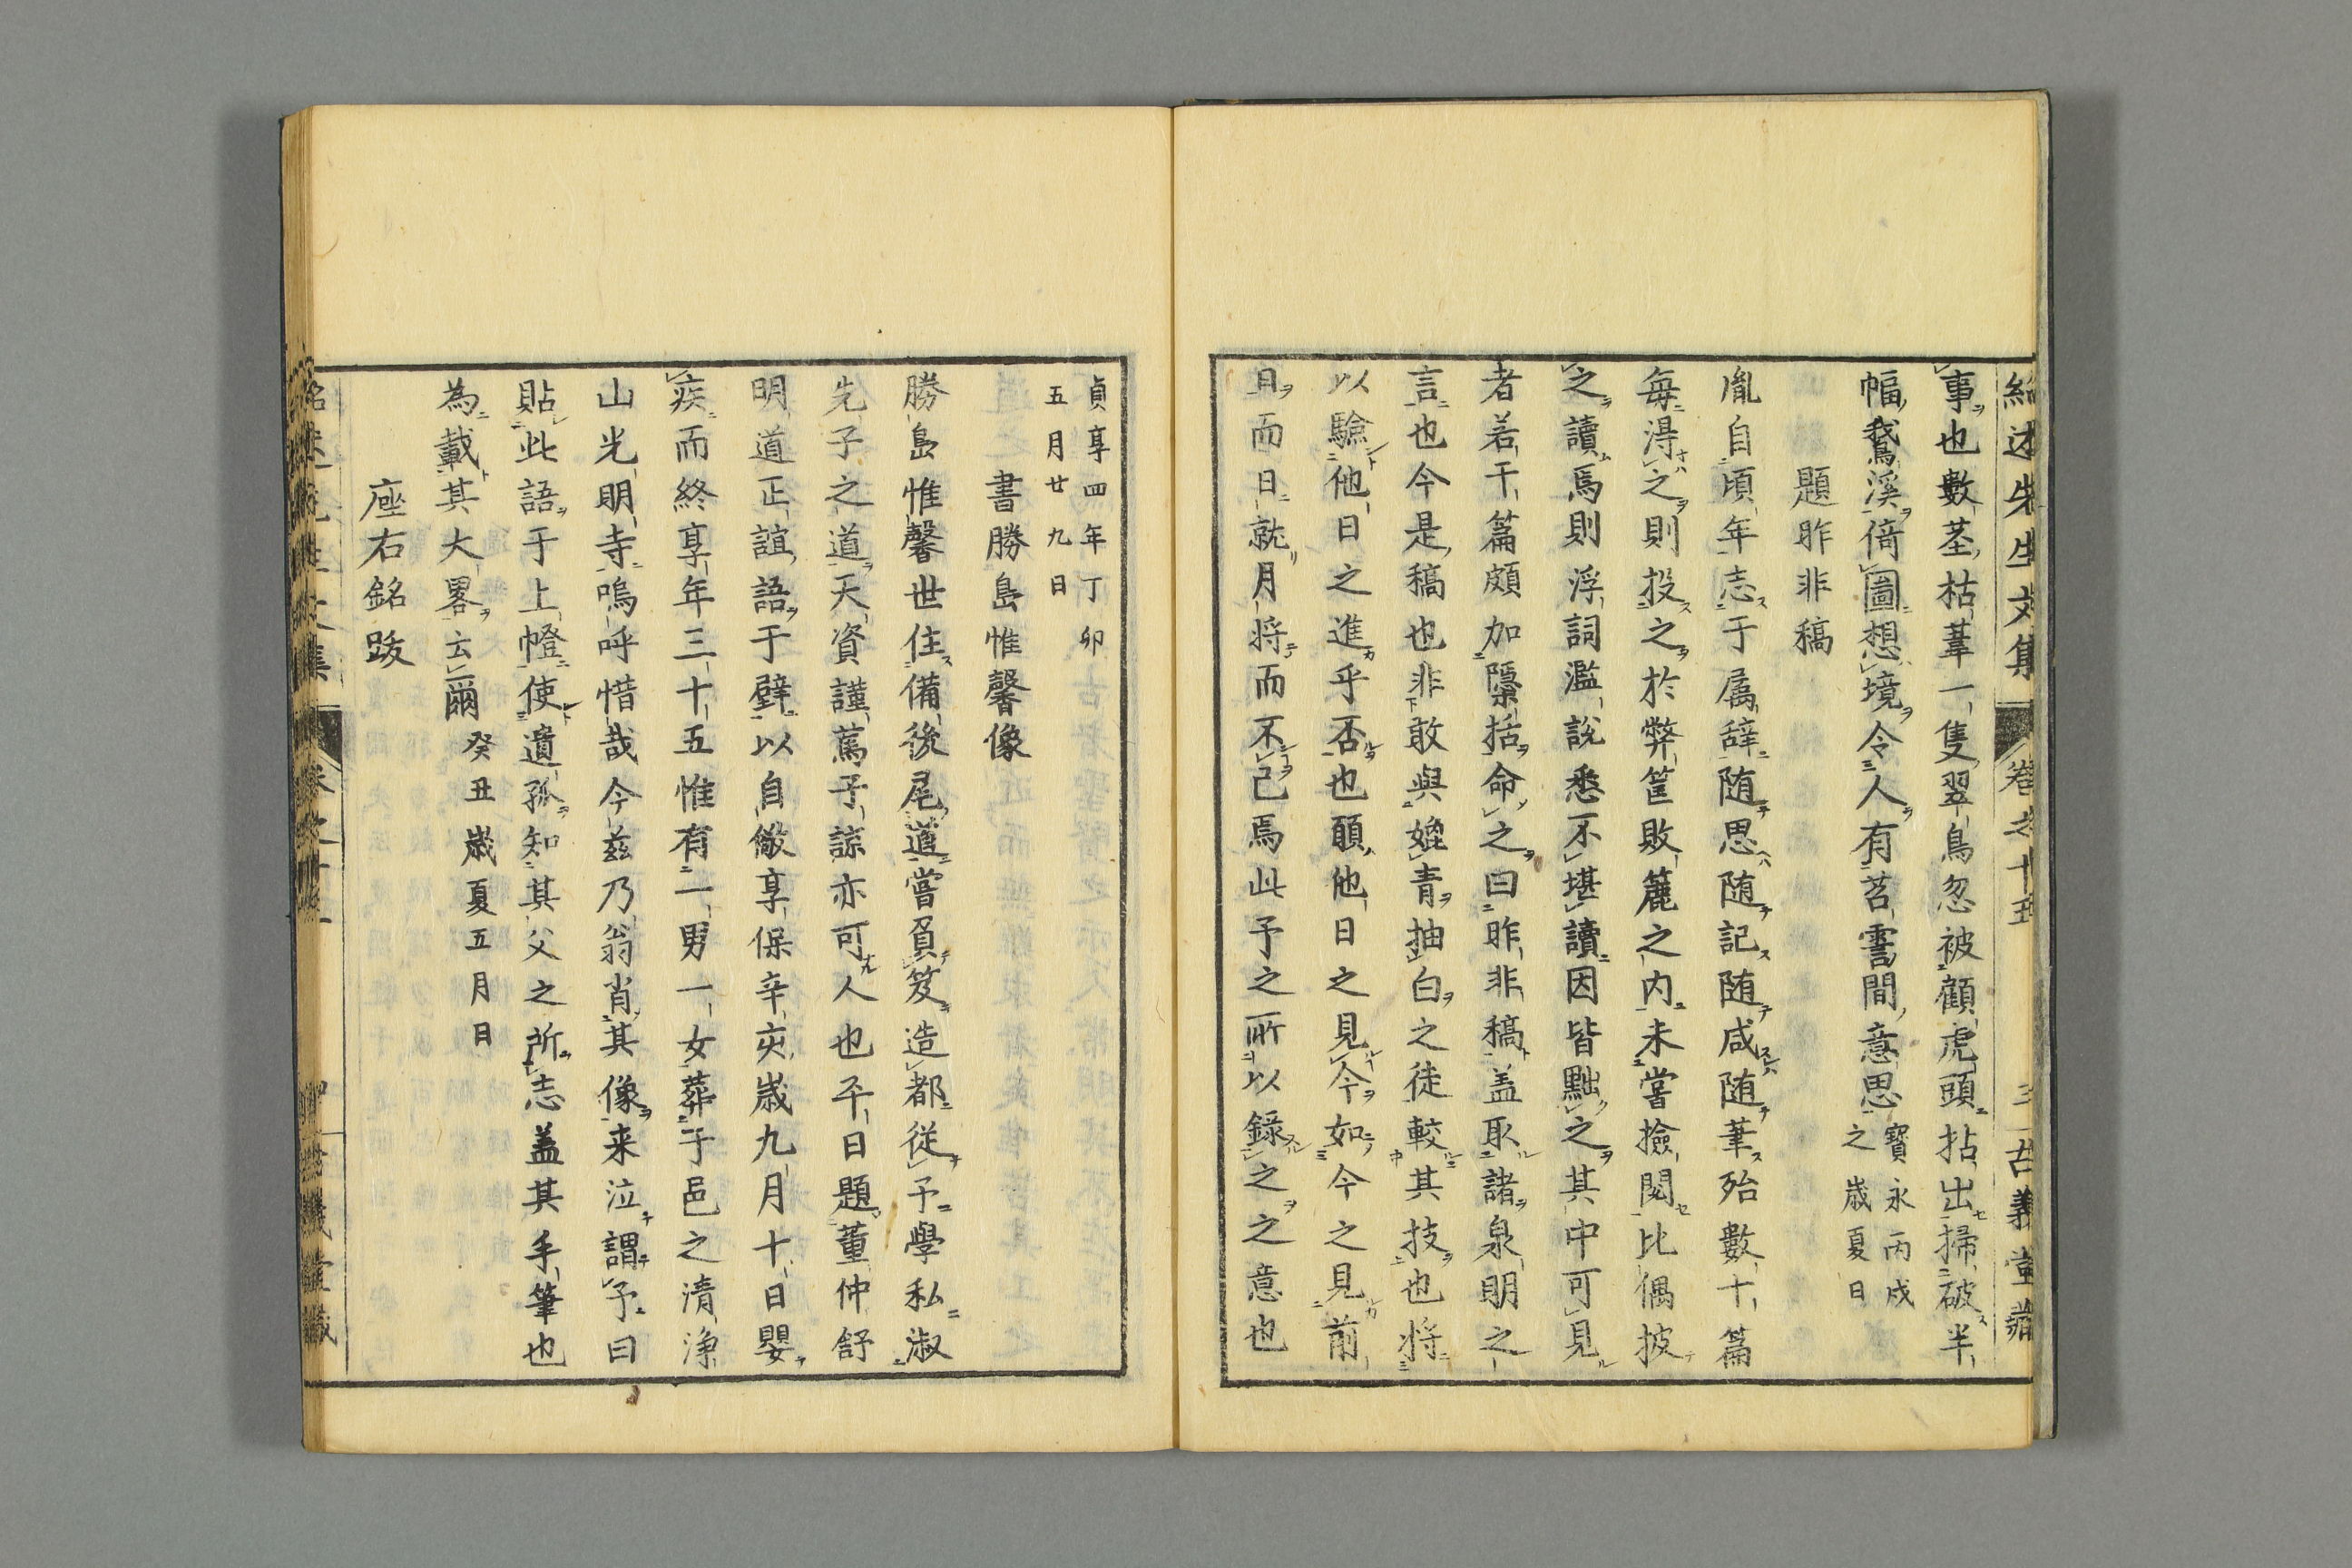 紹述先生文集 卷之十五 古義堂藏
事也數莖枯葦一隻翠鳥忽被顧虎頭拈出掃破半
幅鵞溪倚圖想境令人有苕霅間意思 寶永丙戌
之歳夏日
題昨非稿
胤自頃年志于屬辞随思随記随咸随筆殆數十篇
毎得之則投之於弊筐敗簏之内未嘗撿閲比偶披
之讀焉則浮詞濫説悉不堪讀因皆黜之其中可見
者若干篇頗加隱括命之曰昨非稿盖取諸泉明之
言也今是稿也非敢與媲青抽白之徒較其技也将
以驗他日之進乎否也願他日之見今如今之見前
日而日就月将而不已焉此予之所以錄之之意也
貞享四年丁卯
五月廿九日
書勝島惟馨像
勝島惟馨世住備後尾道嘗負笈造都從予學私淑
先子之道天資謹篤予諒亦可人也平日題董仲舒
明道正誼語于壁以自儆享保辛亥歳九月十日嬰
疾而終享年三十五惟有二男一女葬于邑之清浄
山光明寺嗚呼惜哉今茲乃翁肖其像来泣謂予曰
貼此語于上幢使遺孤知其父之所志盖其手筆也
為載其大畧云爾 癸丑歳夏五月日
座右銘跋